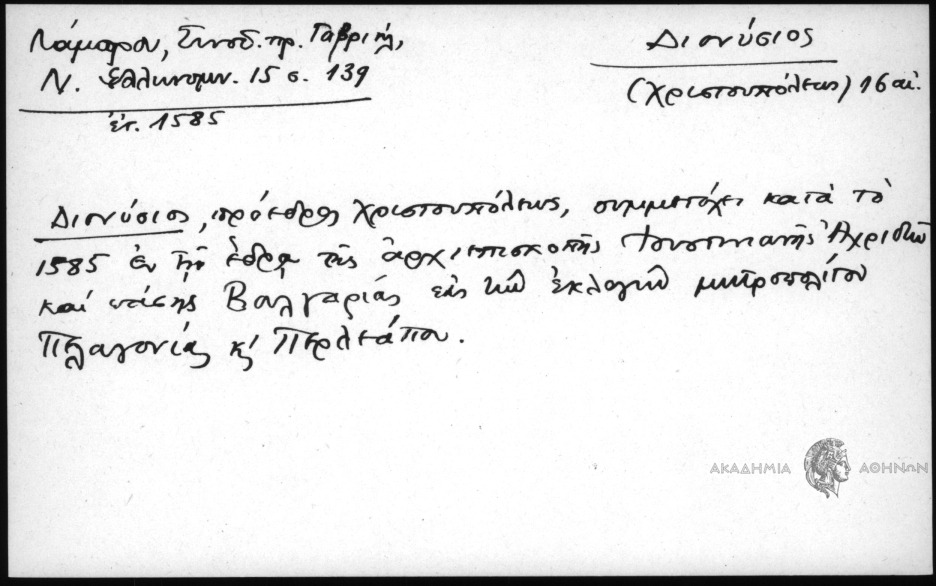 Λάμπρου, Συνοδ. πρ. Γαβριήλ,
Ν. Ἑλληνομν. 15 σ. 139
ἐτ. 1585
Διονύσιος
(Χριστουπόλεως) 16 αἰ.
Διονύσιος, πρόεδρος Χριστουπόλεως, συμμετέχει κατὰ τὸ
1585 ἐν τῇ ἕδρᾳ τῆς ἀρχιεπισκοπῆς Ἰουστινιανῆς Ἀχριδῶν
καὶ πάσης Βουλγαρίας εἰς τὴν ἐκλογὴν μητροπολίτου
Πελαγονίας κ' Περλεάπου.
ΑΚΑΔΗΜΙΑ ΑΘΗΝΩΝ